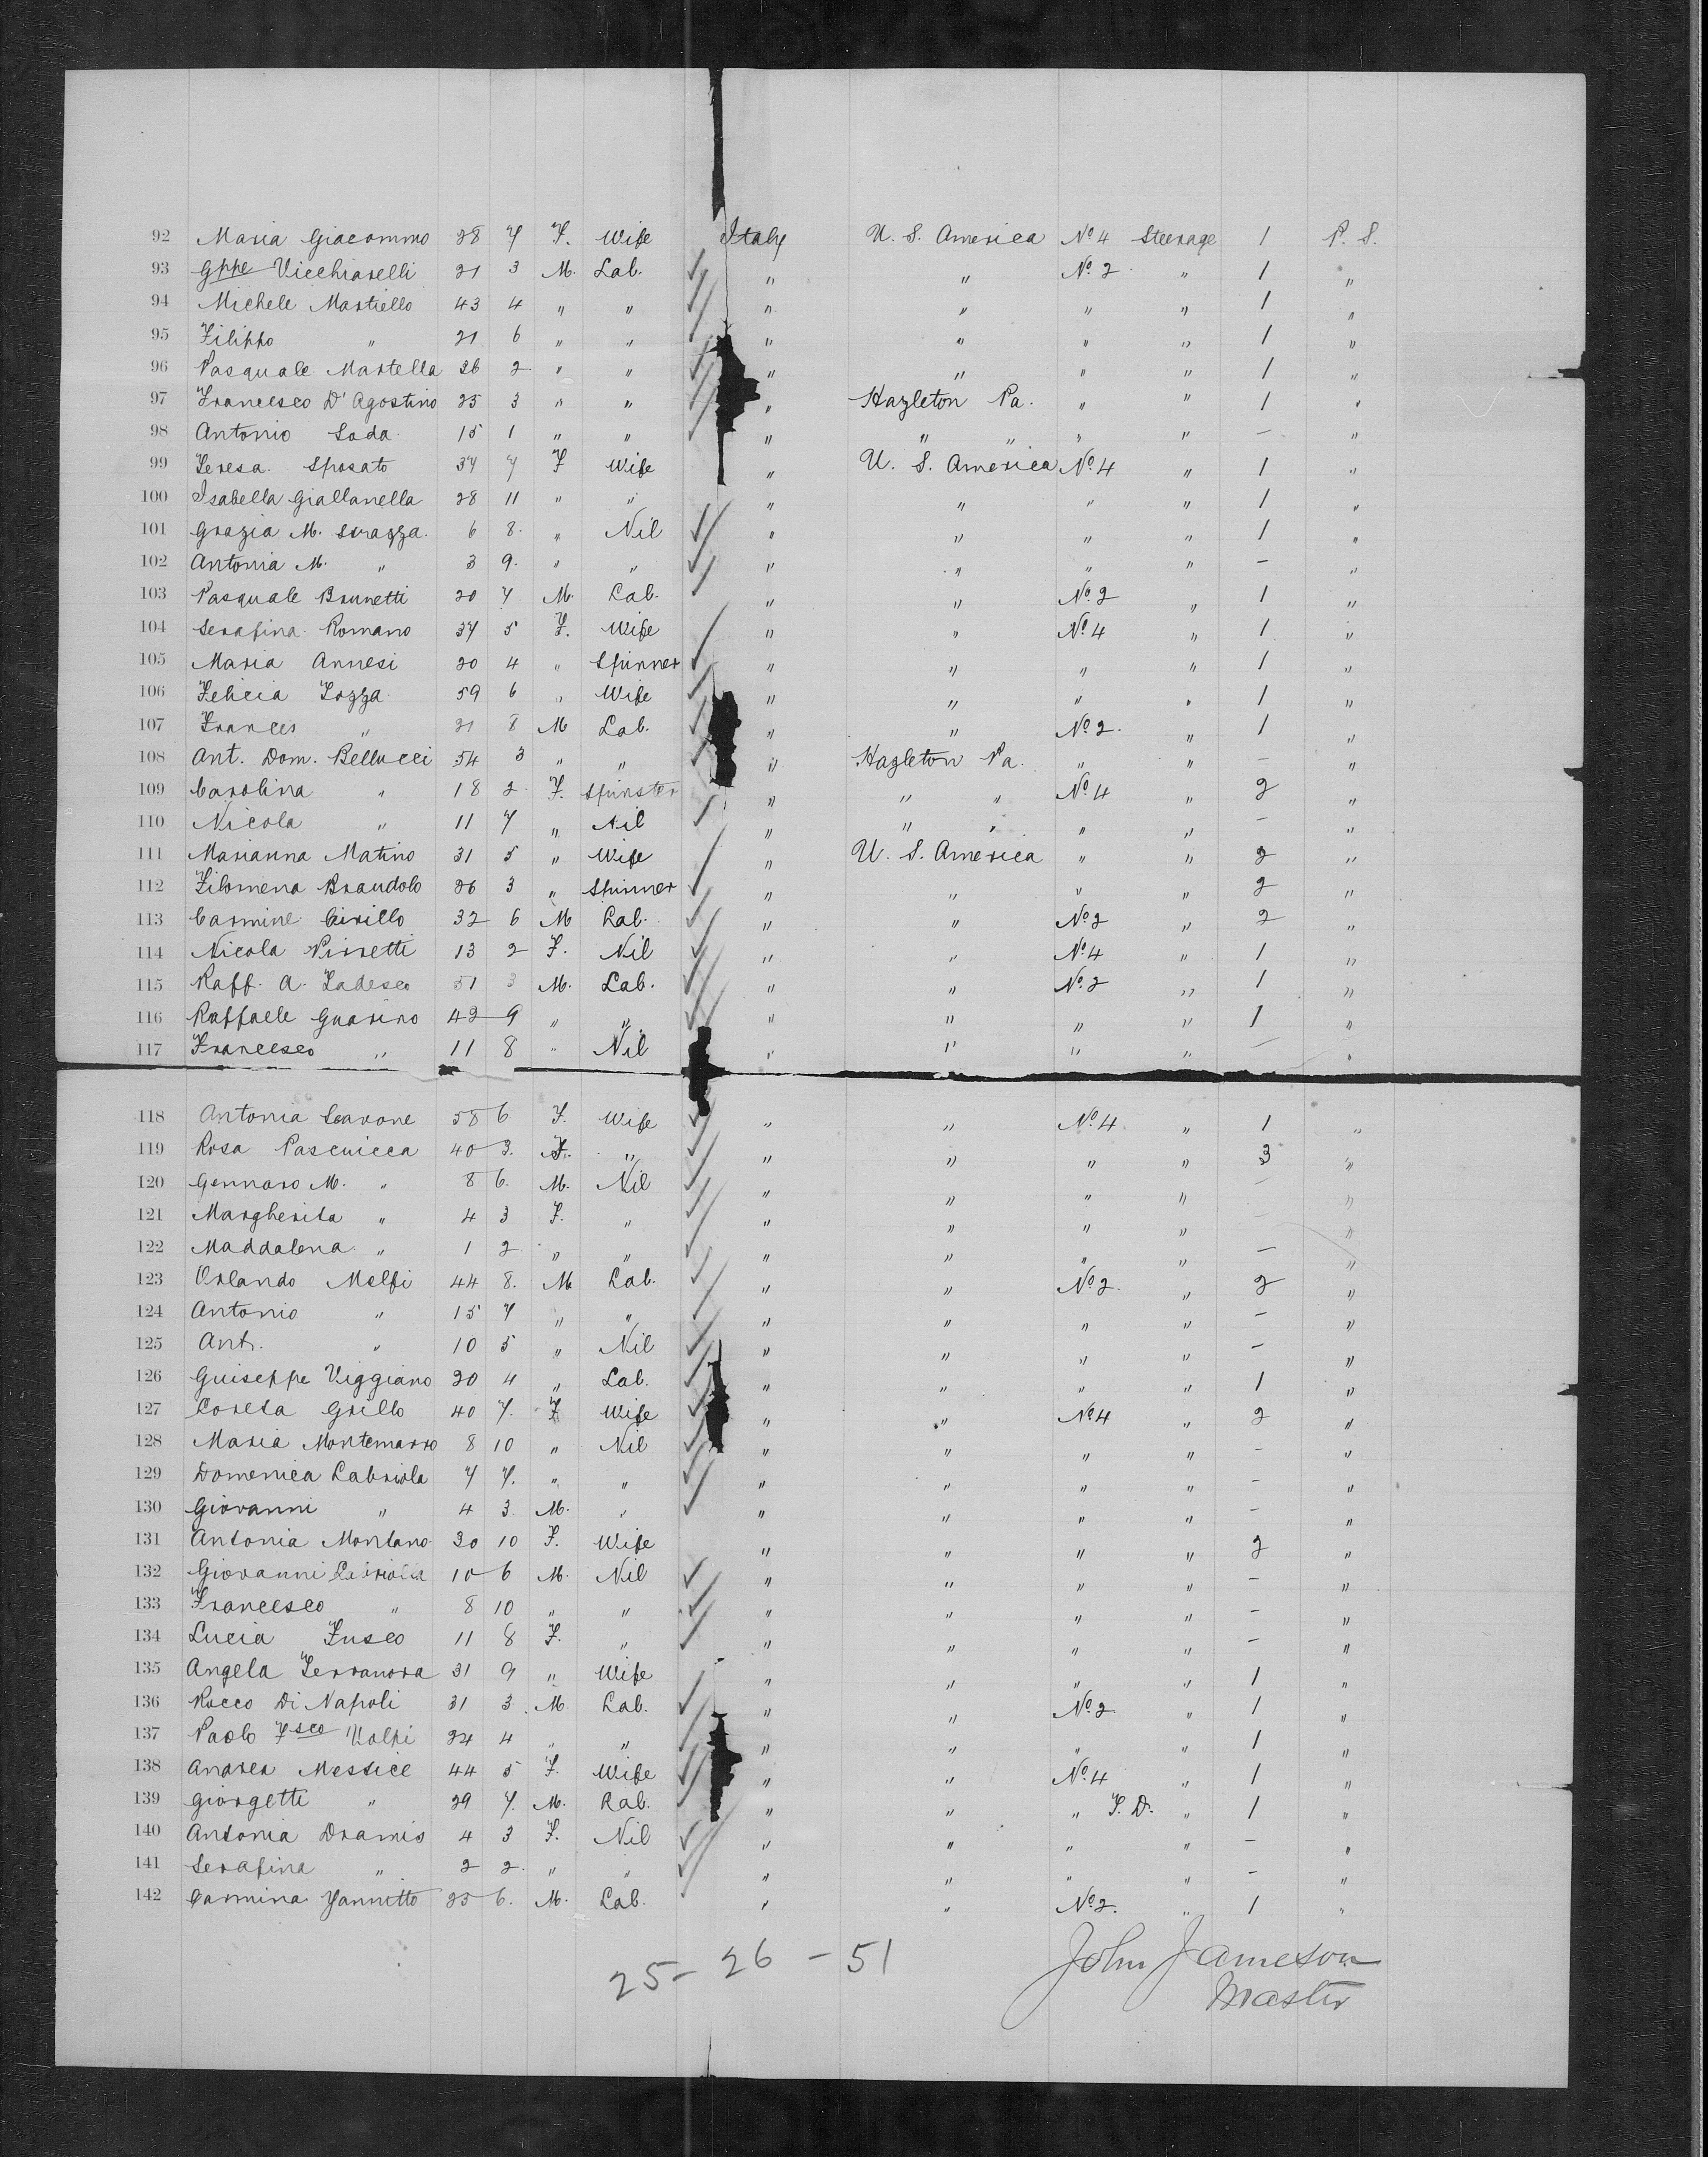 92 Maria Giacommo 28 7 F. Wife Italy U. S. America No 4 Steerage 1 P. S.
93 Gppe Vicchiarelli 21 3 M. Lab. " " No. 2 " 1 "
94 Michele Martiello 43 4 " " " " " " 1 "
95 Filippo " 21 6 " " " " " " 1 "
96 Pasquale Martella 26 2 " " " " " " 1 "
97 Francesco D'Agostino 25 3 " " " Hazleton Pa. " " 1 "
98 Antonio Sada 15 1 " " " " " " " — "
99 Teresa Sposato 37 7 F Wife " U. S. America No. 4 " 1 "
100 Isabella Giallanella 28 11 " " " " " " 1 "
101 Grazia M. Svrazza 6 8 " Nil " " " " 1 "
102 Antonia M. " 3 9 " " " " " " — "
103 Pasquale Brunetti 20 7 M. Lab. " " No. 2 " 1 "
104 Serafina Romano 37 5 F. Wife " " No. 4 " 1 "
105 Maria Annesi 20 4 " Spinner " " " " 1 "
106 Felicia Tozza 59 6 " Wife " " " " 1 "
107 Frances " 21 8 M Lab. " " No. 2 " 1 "
108 Ant. Dom. Bellucci 54 3 " " " Hazleton Pa. " " — "
109 Carolina " 18 2 F. Spinster " " " No. 4 " 2 "
110 Nicola " 11 7 " Nil " " " " " — "
111 Marianna Matino 31 5 " Wife " U. S. America " " 2 "
112 Filomena Braudolo 26 3 " Spinner " " " " 2 "
113 Carmine Cirillo 32 6 M Lab. " " No. 2 " 2 "
114 Nicola Pirretti 13 2 F. Nil " " No. 4 " 1 "
115 Raff. A. Tadesco 51 3 M. Lab. " " No. 2 " 1 "
116 Raffaele Guarino 42 9 " " " " " " 1 "
117 Francesco " 11 8 " Nil " " " " — "
118 Antonia Scavone 58 6 F. Wife " " No. 4 " 1 "
119 Rosa Pascuicca 40 3. F. " " " " " 3 "
120 Gennaro M. " 8 6. M. Nil " " " " — "
121 Margherita " 4 3 F. " " " " " — "
122 Maddalena " 1 2 " " " " " " — "
123 Orlando Melfi 44 8. M Lab. " " No. 2 " 2 "
124 Antonio " 15 7 " " " " " " — "
125 Ant. " 10 5 " Nil " " " " — "
126 Guiseppe Viggiano 20 4 " Lab. " " " " 1 "
127 Loreta Grillo 40 7. F Wife " " No 4 " 2 "
128 Maria Montemarro 8 10 " Nil " " " " — "
129 Domenica Labriola 7 7. " " " " " " — "
130 Giovanni " 4 3 M. " " " " " — "
131 Antonia Montano 30 10 F. Wife " " " " 2 "
132 Giovanni Labriola 10 6 M. Nil " " " " — "
133 Francesco " 8 10 " " " " " " — "
134 Lucia Fusco 11 8 F. " " " " " — "
135 Angela Terranova 31 9 " Wife " " " " 1 "
136 Rocco Di Napoli 31 3 M Lab. " " No. 2 " 1 "
137 Paolo Fsco Volpi 24 4 " " " " " " 1 "
138 Andrea Messice 44 5 F. Wife " " No. 4 " 1 "
139 Giorgetti " 29 7. M. Lab. " " " S. D. " 1 "
140 Antonia Dramis 4 3 F. Nil " " " " — "
141 Serafina " 2 2. " " " " " " — "
142 Carmina Yannitto 25 6. M. Lab. " " No. 2. " 1 "
25 - 26 - 51
John Jameson
Master